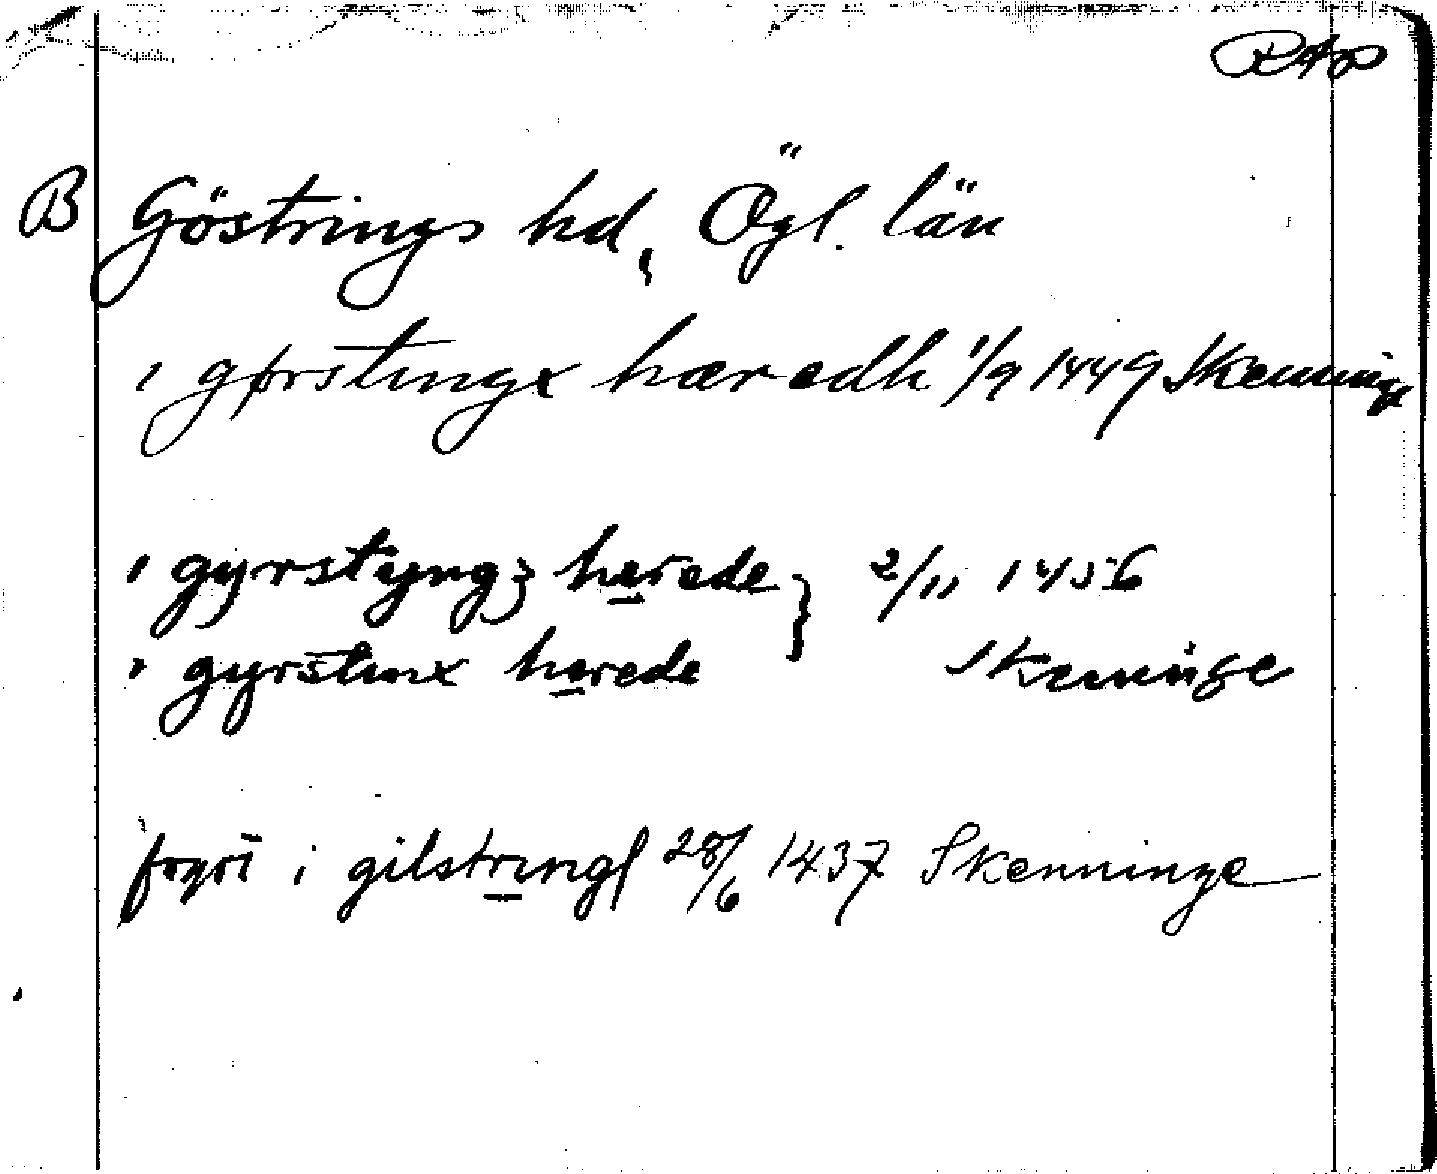 RAp
B Göstrings hd, Ögl. län
i gørstingx hæredh 1/9 1449 Skenninge
i gyrstyngz herede } 2/11 1456
i gyrstinx herede Skeninge
i gilstrings 28/6 1437 Skenninge